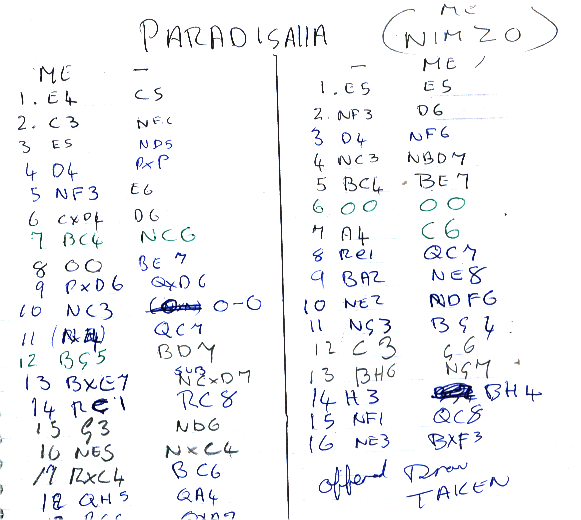 PARADISAIIA (ME NIMZO)
ME –
1. E4 C5
2. C3 NF6
3 E5 ND5
4 D4 PXP
5 NF3 E6
6 CXD4 D6
7 BC4 NC6
8 OO BE7
9 PXD6 QXD6
10 NC3 O-O
11 QC7
12 BG5 BD7
13 BXE7 NCXD7
14 RE1 RC8
15 G3 ND6
16 NE5 NXC4
17 RXC4 BC6
18 QH5 QA4
– ME
1. E5 E5
2. NF3 D6
3 D4 NF6
4 NC3 NBD7
5 BC4 BE7
6 OO OO
7 A4 C6
8 RE1 QC7
9 BA2 NE8
10 NE2 NDF6
11 NG3 BG4
12 C3 G6
13 BH6 NG7
14 H3 BH4
15 NF1 QC8
16 NE3 BXF3
offered Draw
TAKEN